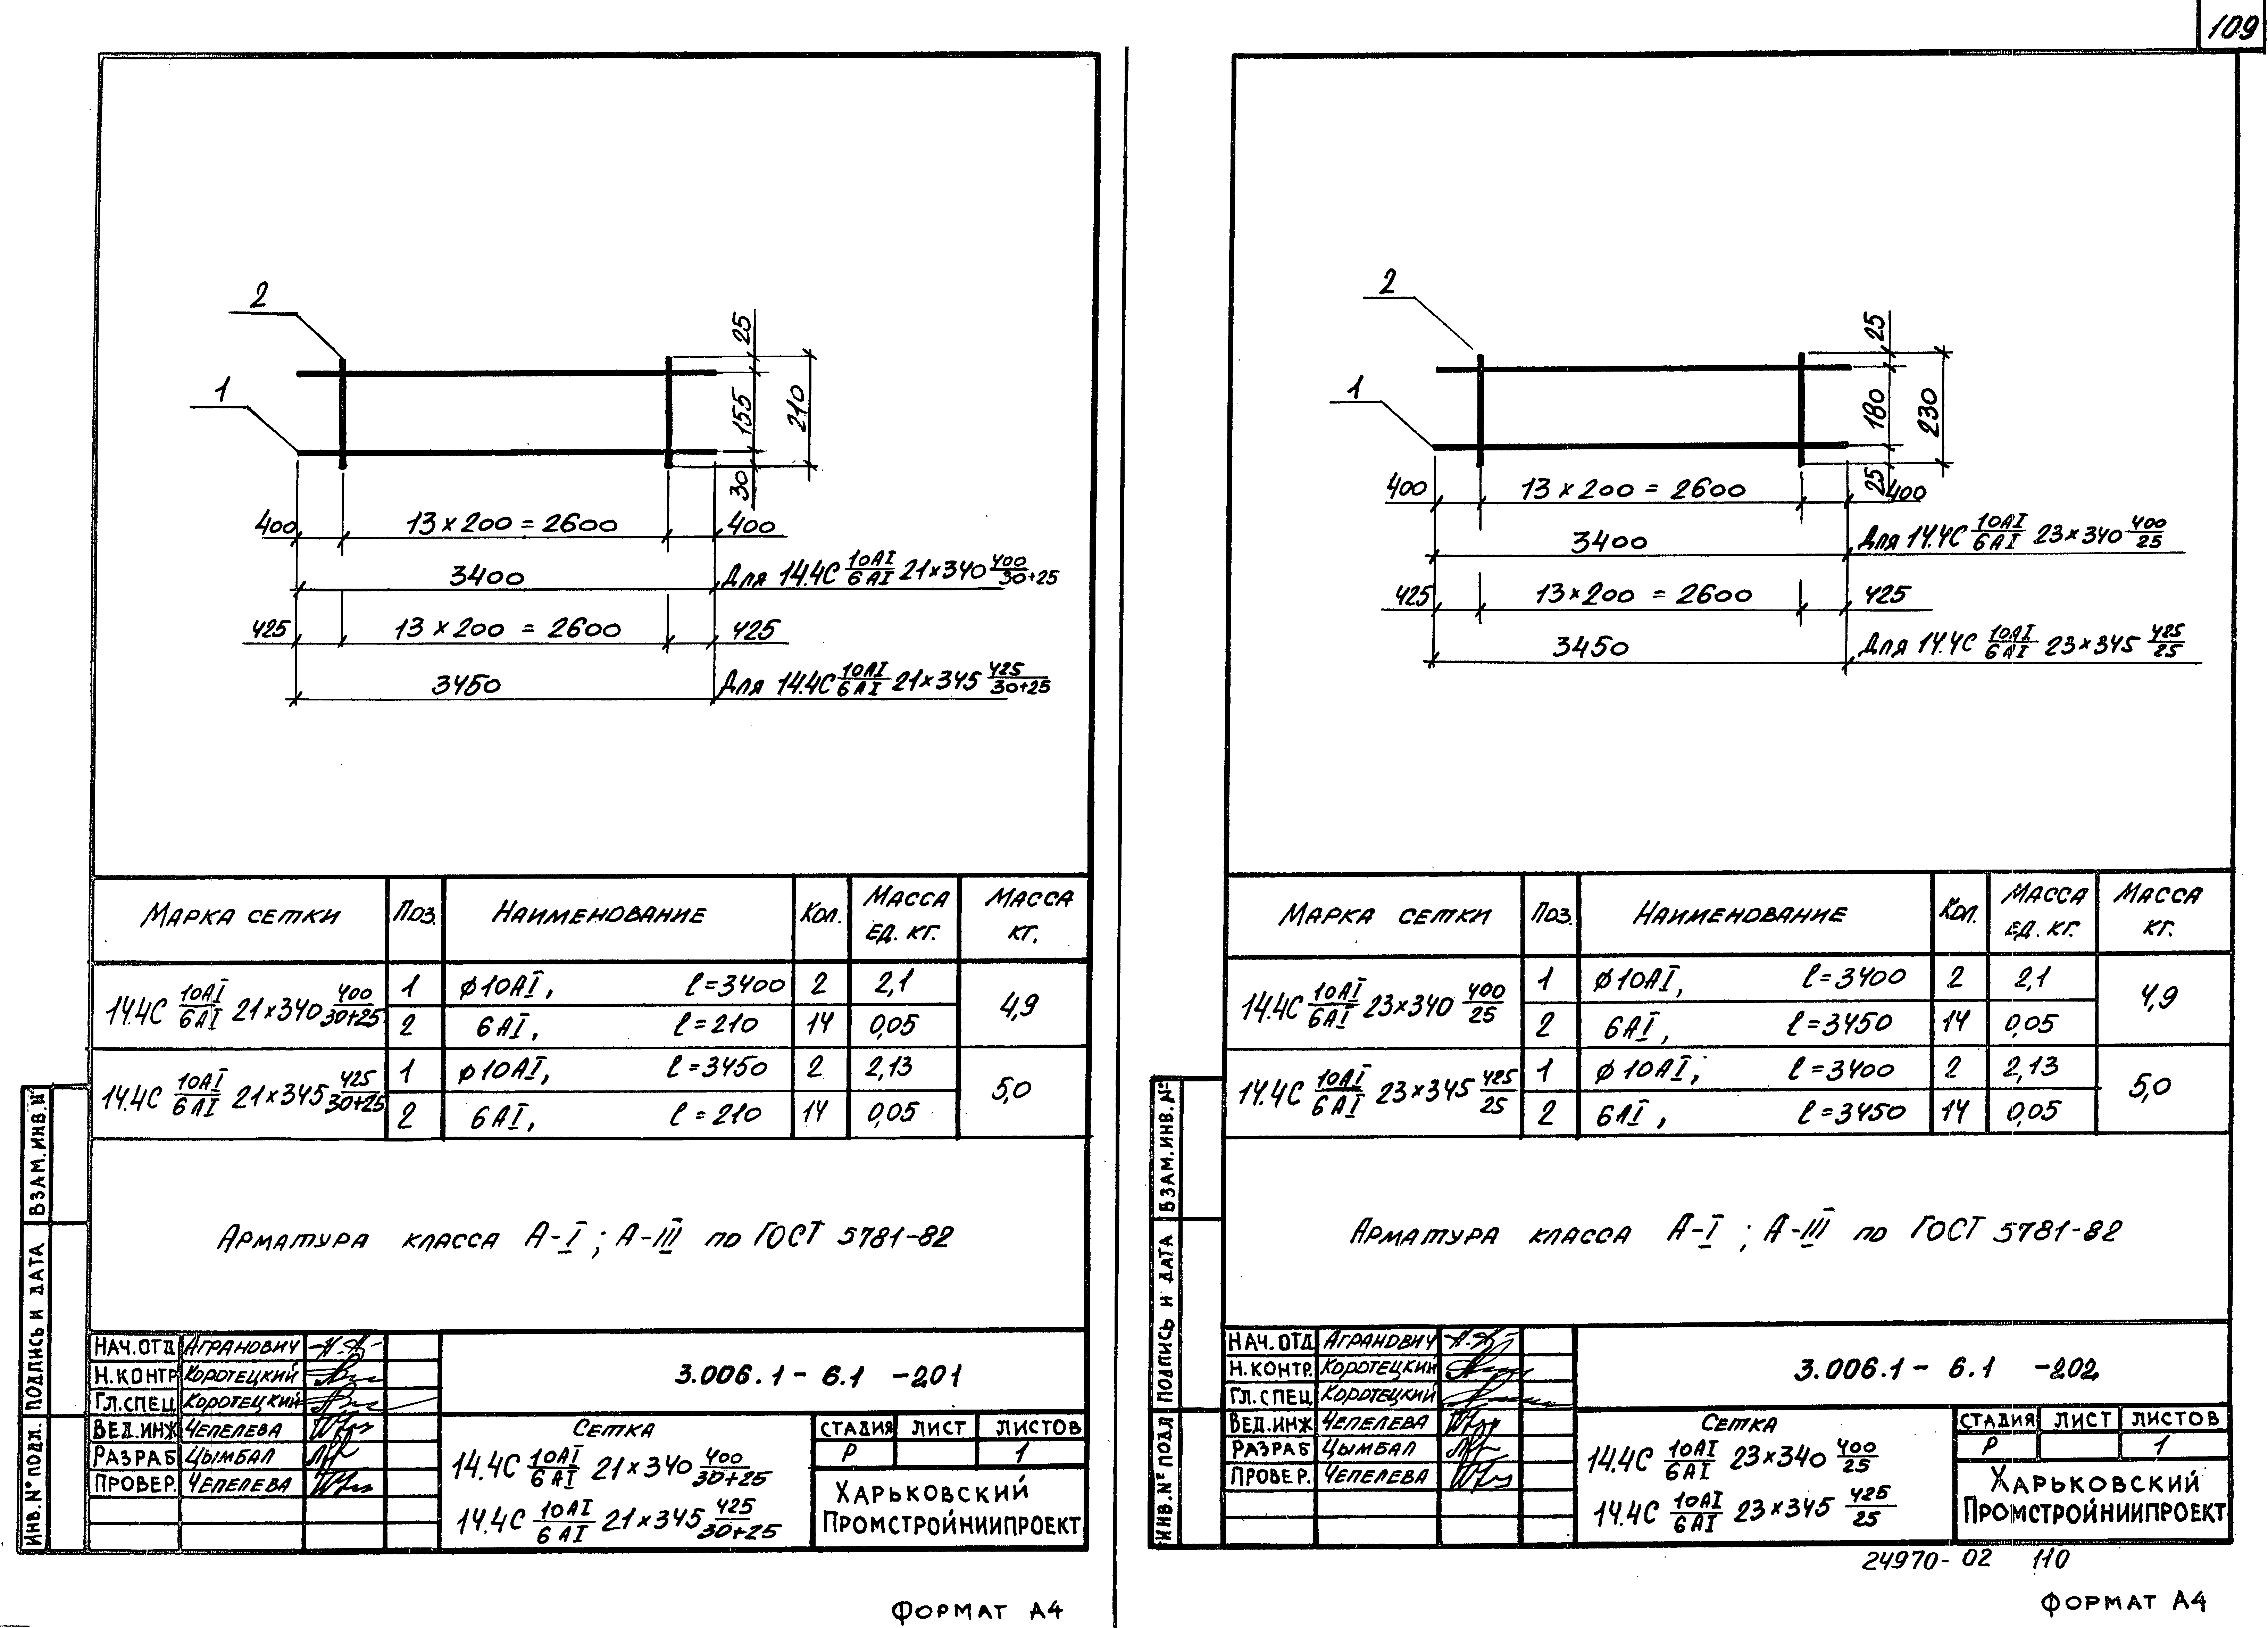 109
2
1
25
155
210
30
400 13×200=2600 400
3400 Для 14.4С 10АI/6АI 21×340 400/30+25
425 13×200=2600 425
3450 Для 14.4С 10АI/6АI 21×345 425/30+25
Марка сетки Поз. Наименование Кол. Масса ед. кг. Масса кг.
14.4С 10АI/6АI 21×340 400/30+25 1 ф10АI, l=3400 2 2,1 4,9
2 6АI, l=210 14 0,05
14.4С 10АI/6АI 21×345 425/30+25 1 ф10АI, l=3450 2 2,13 5,0
2 6АI, l=210 14 0,05
Арматура класса А-I; А-III по ГОСТ 5781-82
ВЗАМ.ИНВ.№
ПОДПИСЬ И ДАТА
ИНВ.№ПОДЛ.
НАЧ.ОТД Агранович
Н.КОНТР Коротецкий
ГЛ.СПЕЦ Коротецкий
ВЕД.ИНЖ Чепелева
РАЗРАБ Цымбал
ПРОВЕР. Чепелева
3.006.1-6.1 -201
Сетка
14.4С 10АI/6АI 21×340 400/30+25
14.4С 10АI/6АI 21×345 425/30+25
СТАДИЯ ЛИСТ ЛИСТОВ
Р 1
Харьковский
Промстройниипроект
Формат А4
2
1
25
180
230
25
400 13×200=2600 400
3400 Для 14.4С 10АI/6АI 23×340 400/25
425 13×200=2600 425
3450 Для 14.4С 10АI/6АI 23×345 425/25
Марка сетки Поз. Наименование Кол. Масса ед. кг. Масса кг.
14.4С 10АI/6АI 23×340 400/25 1 ф10АI, l=3400 2 2,1 4,9
2 6АI, l=3450 14 0,05
14.4С 10АI/6АI 23×345 425/25 1 ф10АI; l=3400 2 2,13 5,0
2 6АI, l=3450 14 0,05
Арматура класса А-I; А-III по ГОСТ 5781-82
ВЗАМ.ИНВ.№
ПОДПИСЬ И ДАТА
ИНВ.№ПОДЛ
НАЧ.ОТД Агранович
Н.КОНТР. Коротецкий
ГЛ.СПЕЦ Коротецкий
ВЕД.ИНЖ Чепелева
РАЗРАБ Цымбал
ПРОВЕР. Чепелева
3.006.1-6.1 -202
Сетка
14.4С 10АI/6АI 23×340 400/25
14.4С 10АI/6АI 23×345 425/25
СТАДИЯ ЛИСТ ЛИСТОВ
Р 1
Харьковский
Промстройниипроект
24970-02 110
Формат А4